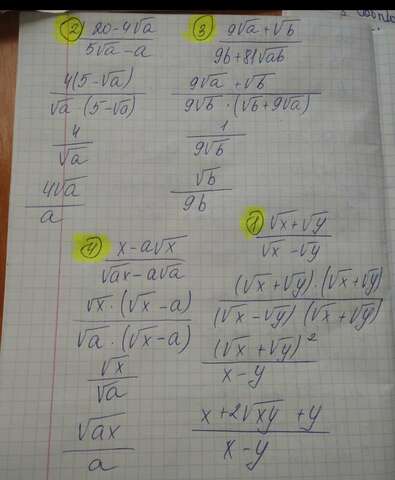 ② (20-4√a)/(5√a-a)
(4(5-√a))/(√a (5-√a))
4/√a
4√a/a
③ (9√a+√b)/(9b+81√ab)
(9√a+√b)/(9√b·(√b+9√a))
1/(9√b)
√b/9b
④ (x-a√x)/(√ax-a√a)
(√x·(√x-a))/(√a·(√x-a))
√x/√a
√ax/a
① (√x+√y)/(√x-√y)
((√x+√y)·(√x+√y))/((√x-√y)(√x+√y))
(√x+√y)²/(x-y)
(x+2√xy+y)/(x-y)